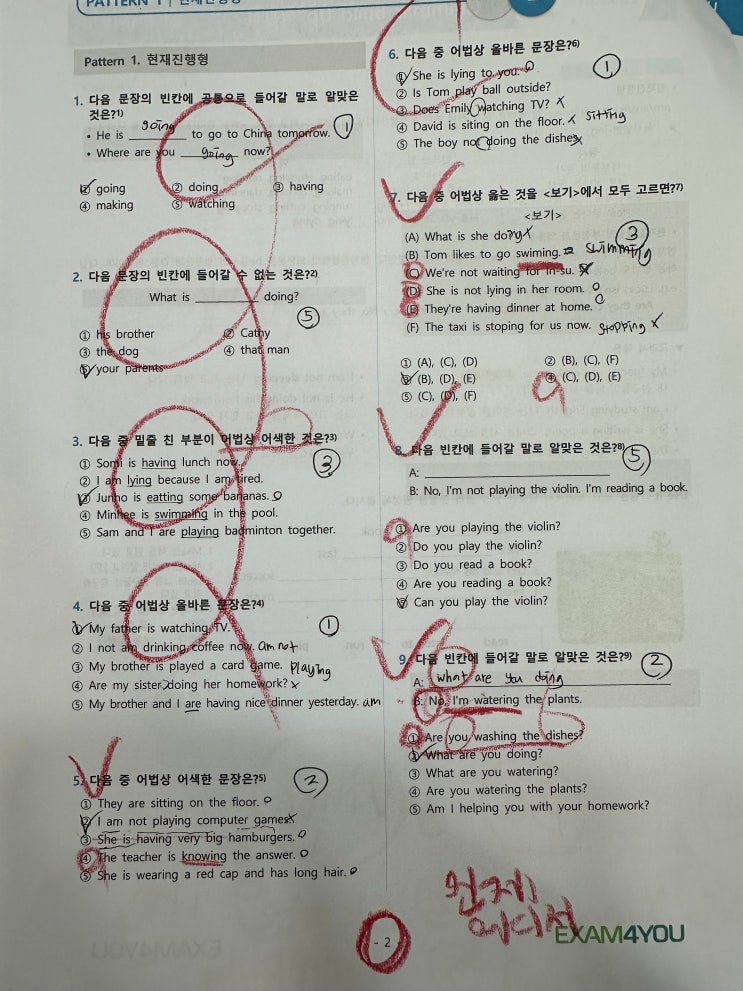 PATTERN 1 | 현재진행형
Pattern 1. 현재진행형
1. 다음 문장의 빈칸에 공통으로 들어갈 말로 알맞은
것은?1)
• He is going to go to China tomorrow. ①
• Where are you going now?
① going ② doing ③ having
④ making ⑤ watching
2. 다음 문장의 빈칸에 들어갈 수 없는 것은?2)
What is ________ doing?
⑤
① his brother ② Cathy
③ the dog ④ that man
⑤ your parents
3. 다음 중 밑줄 친 부분이 어법상 어색한 것은?3)
③
① Somi is having lunch now.
② I am lying because I am tired.
③ Junho is eatting some bananas. O
④ Minhee is swimming in the pool.
⑤ Sam and I are playing badminton together.
4. 다음 중 어법상 올바른 문장은?4)
①
① My father is watching TV.
② I not am drinking coffee now. am not
③ My brother is played a card game. playing
④ Are my sister doing her homework? x
⑤ My brother and I are having nice dinner yesterday. am
5. 다음 중 어법상 어색한 문장은?5) ②
① They are sitting on the floor. O
② I am not playing computer games. x
③ She is having very big hamburgers. O
④ The teacher is knowing the answer. O
⑤ She is wearing a red cap and has long hair. O
6. 다음 중 어법상 올바른 문장은?6)
①
① She is lying to you. O
② Is Tom play ball outside?
③ Does Emily watching TV? X
④ David is siting on the floor. x sitting
⑤ The boy not doing the dishes. x
7. 다음 중 어법상 옳은 것을 <보기>에서 모두 고르면?7)
<보기>
③
(A) What is she do? ing x
(B) Tom likes to go swiming. swimming
(C) We're not waiting for In-su. x
(D) She is not lying in her room. O
(E) They're having dinner at home. O
(F) The taxi is stoping for us now. stopping x
① (A), (C), (D) ② (B), (C), (F)
③ (B), (D), (E) ④ (C), (D), (E)
⑤ (C), (D), (F)
8. 다음 빈칸에 들어갈 말로 알맞은 것은?8) ⑤
A: ________________
B: No, I'm not playing the violin. I'm reading a book.
① Are you playing the violin?
② Do you play the violin?
③ Do you read a book?
④ Are you reading a book?
⑤ Can you play the violin?
9. 다음 빈칸에 들어갈 말로 알맞은 것은?9) ②
A: What are you doing
B: No, I'm watering the plants.
① Are you washing the dishes?
② What are you doing?
③ What are you watering?
④ Are you watering the plants?
⑤ Am I helping you with your homework?
언제,
어디서
- 2 -
EXAM4YOU